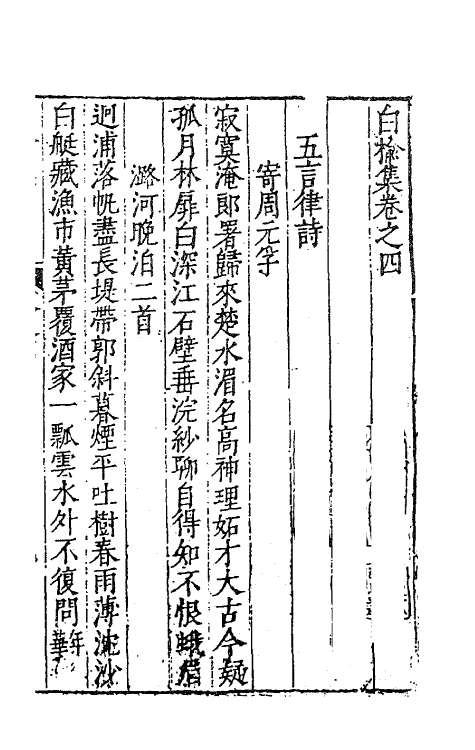 白榆集卷之四
五言律詩
寄周元孚
寂寞淹郎署歸來楚水湄名高神理妬才大古今疑
孤月林扉白深江石壁垂浣紗聊自得知不恨蛾眉
潞河晚泊二首
迥浦落帆盡長堤帶郭斜暮煙平吐樹春雨薄沈沙
白艇藏漁市黃茅覆酒家一瓢雲水外不復問年華